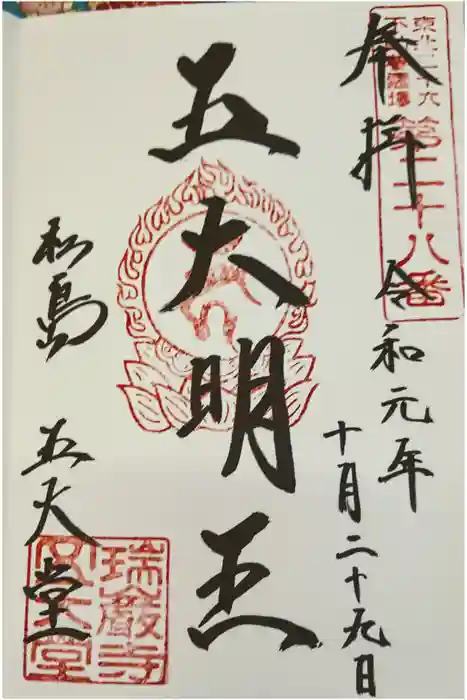 東北三十六
不動尊霊場
第二十八番
奉拝
令和元年
十月二十九日
五大明王
松島
五大堂
瑞巌寺
五大堂